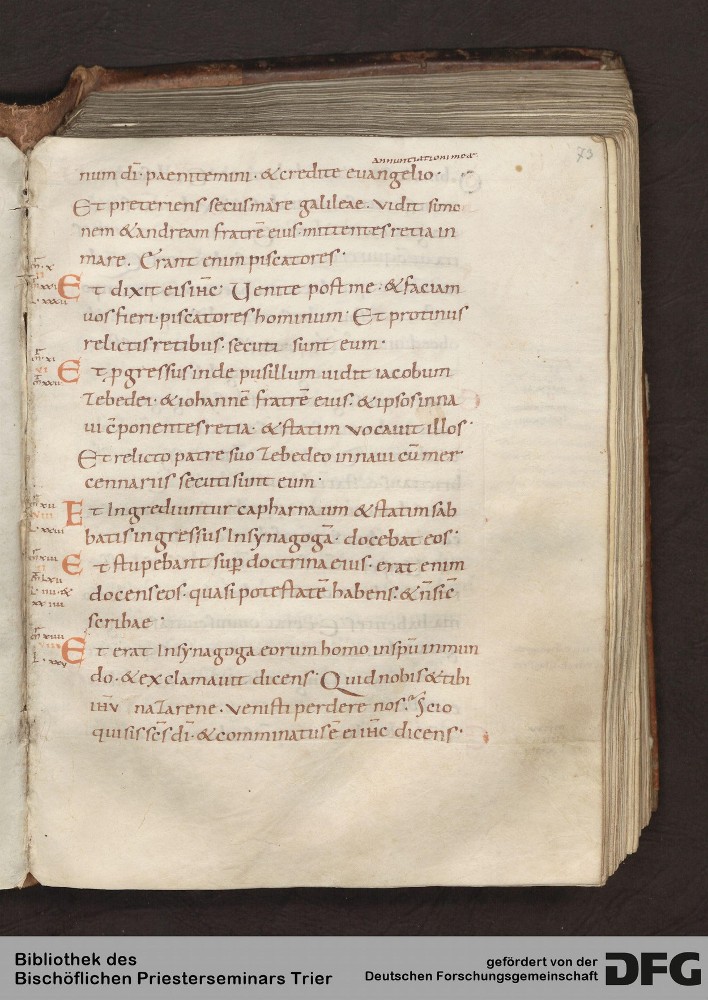 annunciationi meae
73
num dī· paenitemini· & credite evangelio·
Et preteriens secus mare galileae· vidit simo
nem & andream fratrē eius· mittentes retia in
mare. Erant enim piscatores·
Et dixit eis ihc· Venite post me· & faciam
vos fieri· piscatores hominum· Et protinus
relictis retibus· secuti sunt eum·
Et ꝓgressus inde pusillum vidit iacobum
Zebedei· & iohannē fratrē eius· & ipsos in na
vi cōponentes retia· & statim vocavit illos·
Et relicto patre suo Zebedeo in navi cū mer
cennariis secuti sunt eum·
Et Ingrediuntur capharnaum & statim sab
batis ingressus In synagogā· docebat eos·
Et stupebant suꝑ doctrina eius· erat enim
docens eos· quasi potestatē habens· & n̄ sic̄
scribae·
Et erat In synagoga eorum homo in spū inmun
do· & exclamavit dicens· Quid nobis & tibi
ihū naZarene· venisti perdere nos· Scio
qui sis scs̄ dī· & comminatus ē ei ihc dicens·
Bibliothek des
Bischöflichen Priesterseminars Trier
gefördert von der
Deutschen Forschungsgemeinschaft
DFG